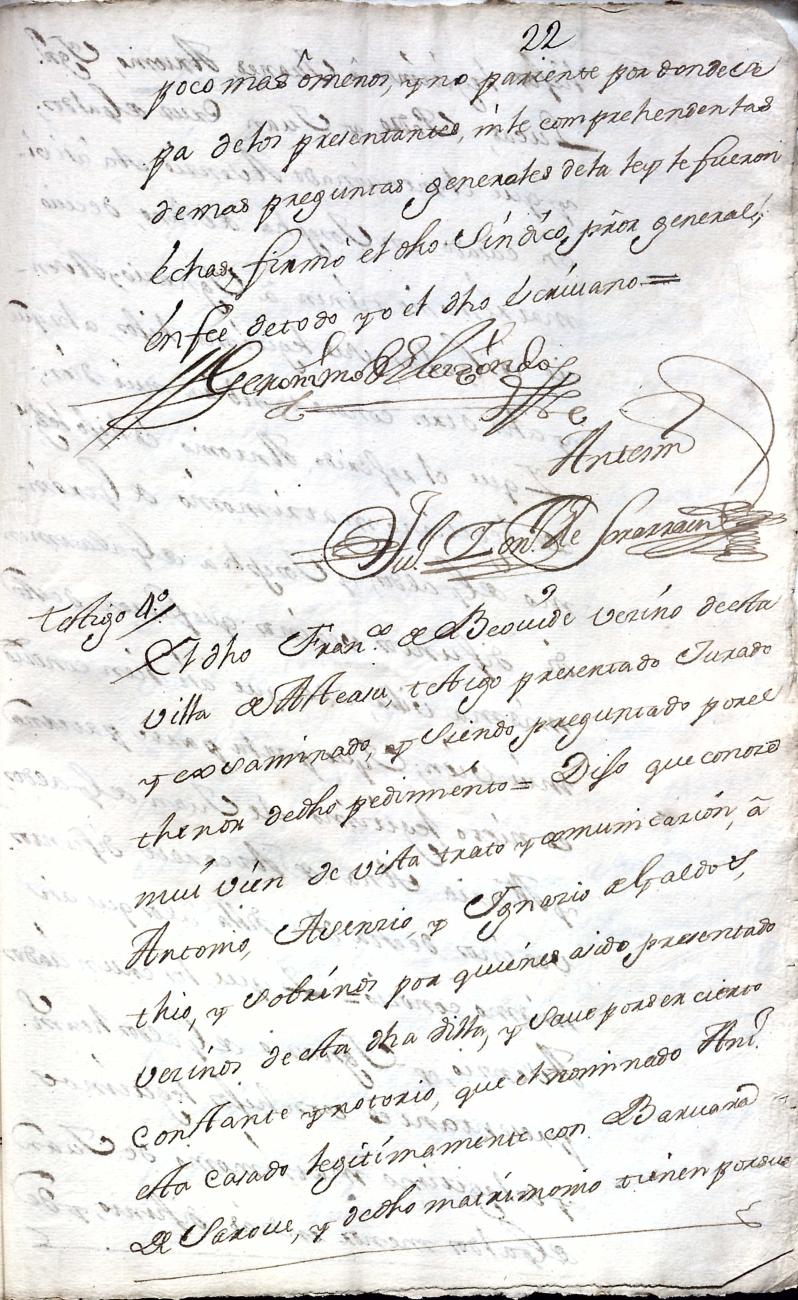 22
poco mas ô menos, y no pariente por donde se
pa de los presentantes, ni le comprehenden las
demas preguntas generales de la ley le fueron
échas, firmó el dho Síndico, prôr general,
én feé de todo yo el dho Escriuano =
Geronimo de Elizondo
Antemi
Ju.
de
testigo 4.º
El dho Fran.co de Beouide vezino de esta
villa de Asteasu, testigo presentado Jurado
y exsaminado, y siendo preguntado por el
thenor de dho pedimiento = Dijo que conoze
mui vien de vista trato y comunicazion, â
Antonio, Asenzio, y Ygnazio de Galdos,
thio, y sobrinos por quienes a sido presentado
vezinos de esta dha villa, y saue por ser cierto
constante y notorio, que el nominado Ant.
esta casado legitimamente con Baruara
de Saroue, y de dho matrimonio tienen por su